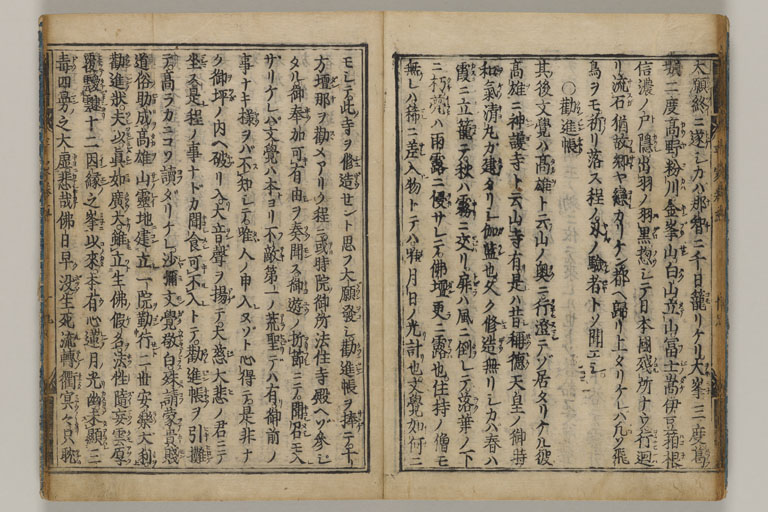 大願終ニ遂シカハ那智ニ千日籠リケリ大峯三度葛
城二度高野粉川金峯山白山立山冨士嵩伊豆箱根
信濃ノ戸隠出羽ノ羽黒惣シテ日本國殘所ナク行廻
リ流石猶故郷ヤ戀カリケン都ヘ歸リ上タリケレハ凡ソ飛
鳥ヲモ祈リ落ス程ノ刃ノ驗者トソ聞エシ
○勸進帳
其後文覺ハ髙雄ト云山ノ奥ニ行澄テゾ居タリケル彼
髙雄ニ神護寺ト云山寺有是ハ昔稱德天皇ノ御時
和氣清丸カ建タリシ伽藍也久ク修造無リシカハ春ハ
霞ニ立籠テ秋ハ霧ニ交リ扉ハ風ニ倒レテ落葉ノ下
ニ朽甍ハ雨露ニ侵サレテ佛壇更ニ露也住持ノ僧モ
無レハ稀ニ差入物トテハ月日ノ光計也文覺如何ニ
モシテ此寺ヲ修造セント思フ大願發シ勸進帳ヲ捧テ十
方壇那ヲ勸メアリク程ニ或時院御所法住寺殿ヘゾ參シ
タル御奉加可有由ヲ奏聞ス御遊ノ折節ニテ聞召モ入
サリケレバ文覺ハ本ヨリ不敵第一ノ荒聖テハ有御前ノ
事ナキ樣ヲハ不知シテ唯人ノ申入ヌゾト心得テ是非ナ
ク御坪ノ内ヘ破リ入大音聲ヲ揚テ大慈大悲ノ君ニテ
坐ス是程ノ事ナドカ聞食可不入トテ勸進帳ヲ引擴
テ髙ラカニコソ讀タリケレ沙彌文覺敬白殊請蒙貴賤
道俗助成髙雄山靈地建立一院勤行二世安樂大利
勸進狀夫以真如廣大雖立生佛假名法性隨妄雲厚
覆靉靆十二因緣之峯以來本有心蓮月光幽未顯三
毒四曼之大虛悲哉佛日早没生死流轉衢冥々只耽